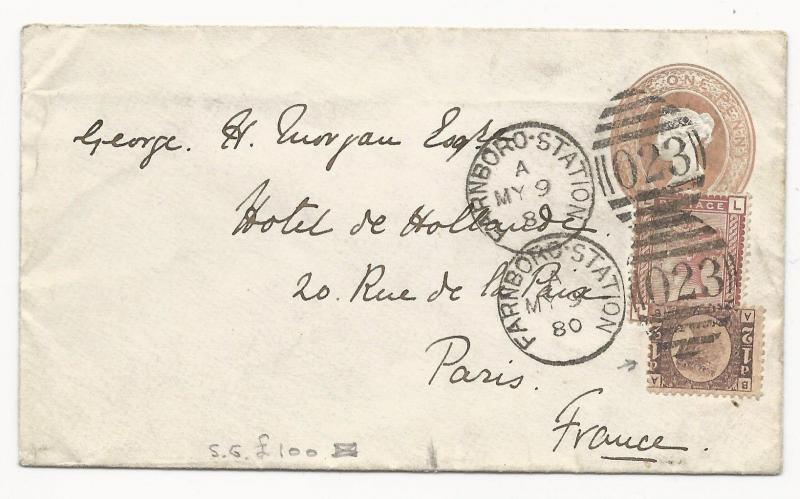 ONE PENNY
George. H. Morgan Esqre
Hotel de Hollande.
20. Rue de la Paix
Paris.
France.
FARNBORO-STATION
A
MY 9
80
FARNBORO-STATION
MY 9
80
023
023
POSTAGE
L
L
½d
B
A
A
B
S.G. £100